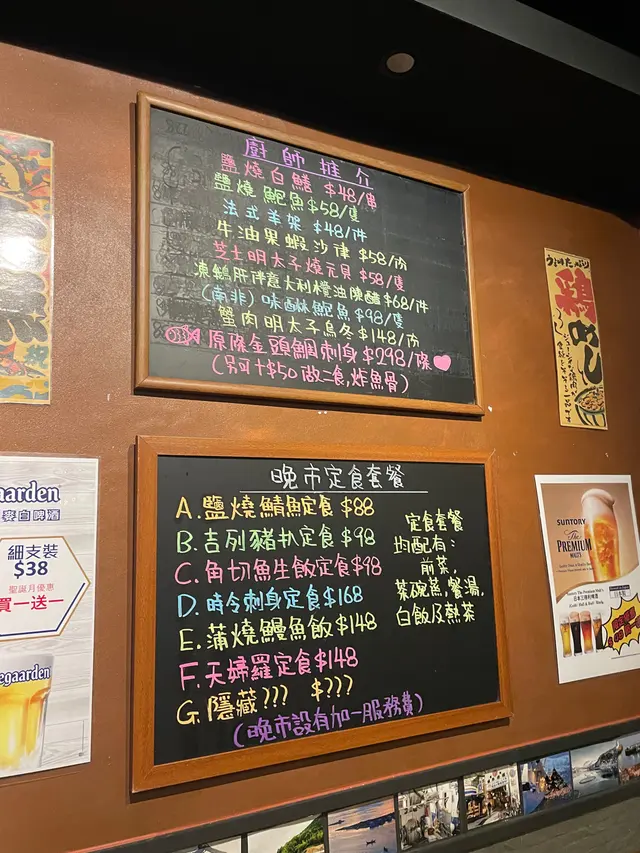 廚師推介
鹽燒白鱔 $48/串
鹽燒鮑魚$58/隻
法式羊架 $48/件
牛油果蝦沙律 $58/份
芝士明太子燒元貝 $58/隻
凍鵝肝伴意大利欖油陳醋 $68/件
(南非) 味醂鮑魚 $98/隻
蟹肉明太子烏冬 $148/份
原條金頭鯛刺身 $298/條
(另可+$50做二食,炸魚骨)
晚市定食套餐
A.鹽燒鯖魚定食 $88
B.吉列豬扒定食 $98
C.角切魚生飯定食$98
D.時令刺身定食 $168
E.蒲燒鰻魚飯 $148
F.天婦羅定食$148
G.隱藏??? $???
(晚市設有加一服務費)
定食套餐
均配有:
前菜,
茶碗蒸,餐湯,
白飯及熱茶
aarden
麥白啤酒
細支裝
$38
聖誕月優惠
買一送一
egaarden
鶏めし
SUNTORY
The
PREMIUM
MALT'S